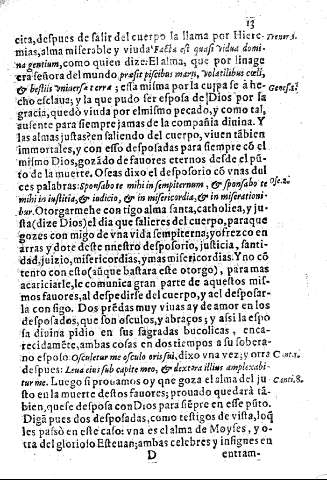 13
cita, despues de salir del cuerpo la llama por Hiere- Trenor. 1.
mias, alma miserable y viuda Facta est quasi vidua domi-
na gentium, como quien dize: El alma, que por linage
era señora del mundo præsit piscibus maris, volatilibus cœli,
& bestiis universæ terræ; essa misma por la culpa se á he- Genes. 1.
cho esclaua; y la que pudo ser esposa de Dios por la
gracia, quedò viuda por el mismo pecado, y como tal,
ausente para siempre jamas de la compañia divina. Y
las almas justas? en saliendo del cuerpo, viuen tãbien
immortales, y con esso desposadas para siempre cõ el
mismo Dios, gozãdo de fauores eternos desde el pũ-
to de la muerte. Oseas dixo el desposorio cõ vnas dul
ces palabras: Sponsabo te mihi in sempiternum, & sponsabo te Ose. 2.
mihi in iustitia, & iudicio, & in misericordia, & in miserationi-
bus. Otorgarmehe con tigo alma santa, catholica, y ju-
sta (dize Dios) el dia que salieres del cuerpo, para que
gozes con migo de vna vida sempiterna; yo frezco en
arras y dote deste nuestro desposorio, justicia, santi-
dad, juizio, misericordias, y mas misericordias. Y no cõ
tento con esto (aũque bastara este otorgo), para mas
acariciarle, le comunica gran parte de aquestos mis-
mos fauores, al despedirse del cuerpo, y al desposar-
la con sigo. Dos prẽdas muy viuas ay de amor en los
desposados, que son osculos, y abraços; y assi la espo
sa divina pidio en sus sagradas bucolicas, enca-
recidamẽte, ambas cosas en dos tiempos a su sobera-
no esposo Osculetur me osculo oris sui, dixo vna vez; y otra Cant. 1.
despues: Leua eius sub capite meo, & dextera illius amplexabi-
tur me. Luego si prouamos oy que goza el alma del ju Cant. 8.
sto en la muerte destos fauores; prouado quedarà tã-
bien, que se desposa con Dios para siẽpre en esse pũto.
Diga pues dos desposadas, como testigos de vista, lo q̃
les passò en este caso: vna es el alma de Moyses, y o-
tra del glorioso Esteuan; ambas celebres y insignes en
D entram-